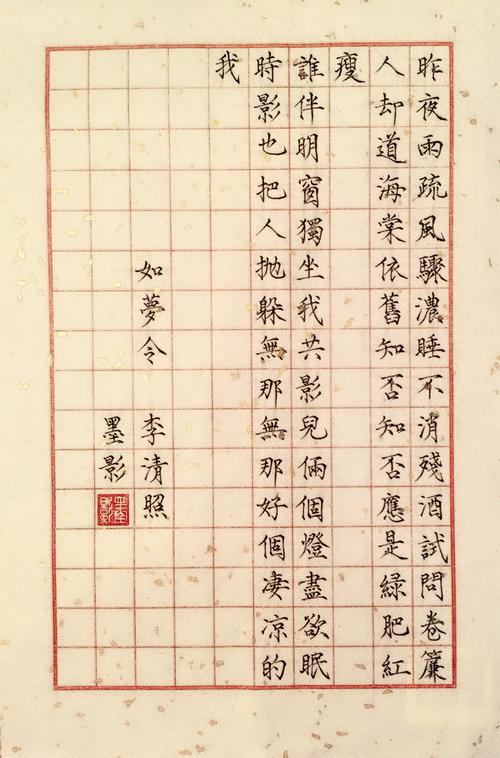 昨夜雨疏風驟濃睡不消殘酒試問卷簾
人却道海棠依舊知否知否應是綠肥紅
瘦
誰伴明窗獨坐我共影兒倆個燈盡欲眠
時影也把人抛躲無那無那好個凄凉的
我
如夢令 李清照
墨影
墨影